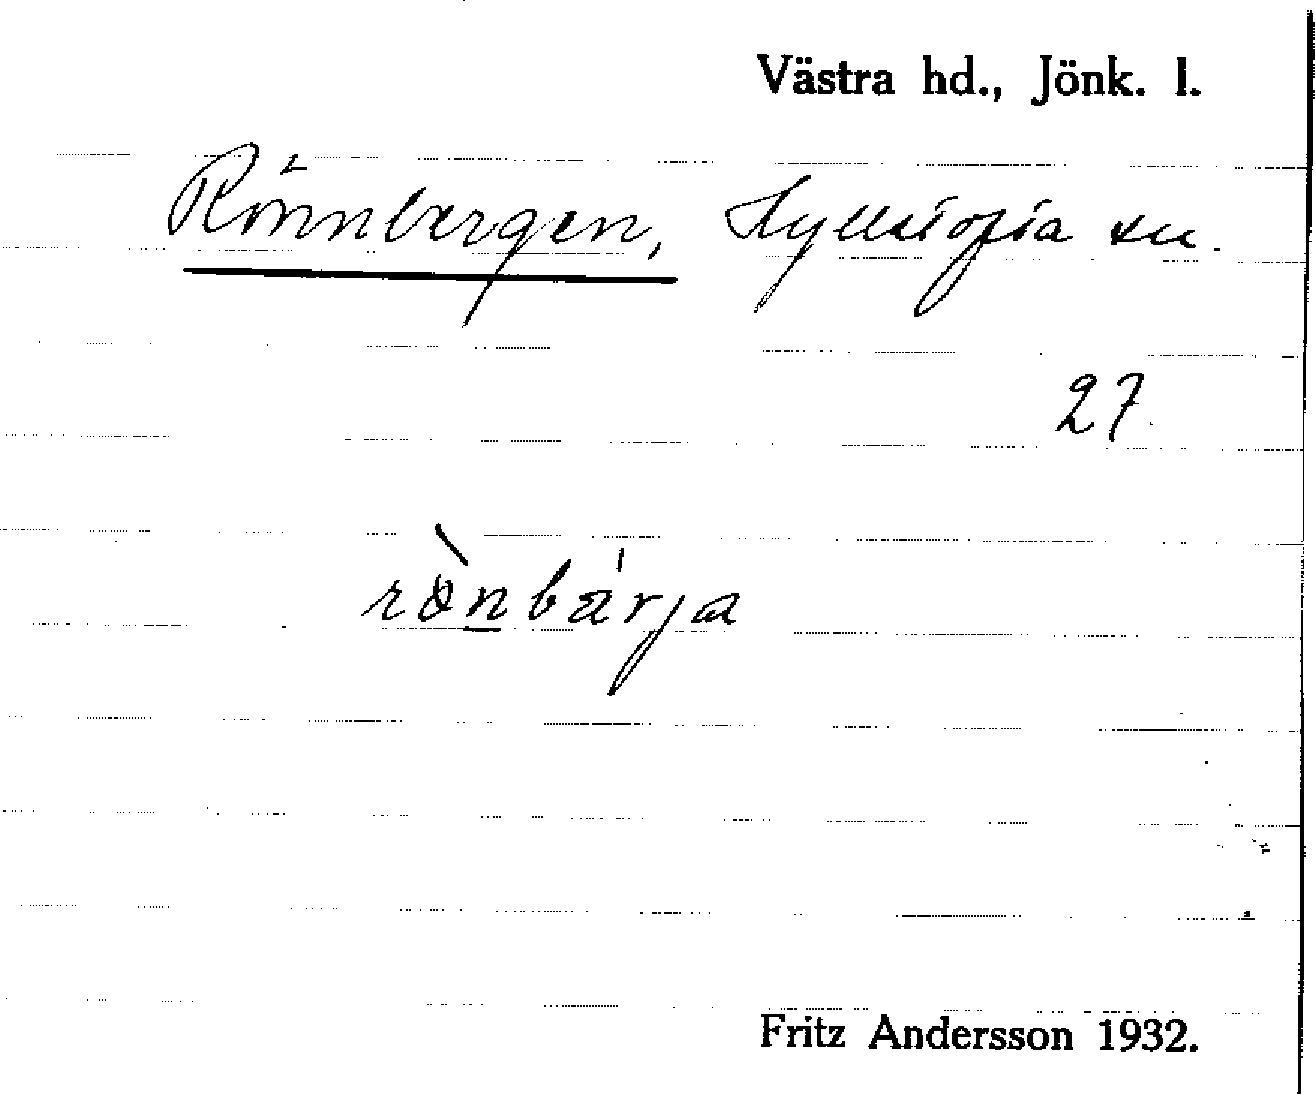 Västra hd., Jönk. l.
Rönnbergen, Kyllstofta sn.
27.
rönbärja
Fritz Andersson 1932.